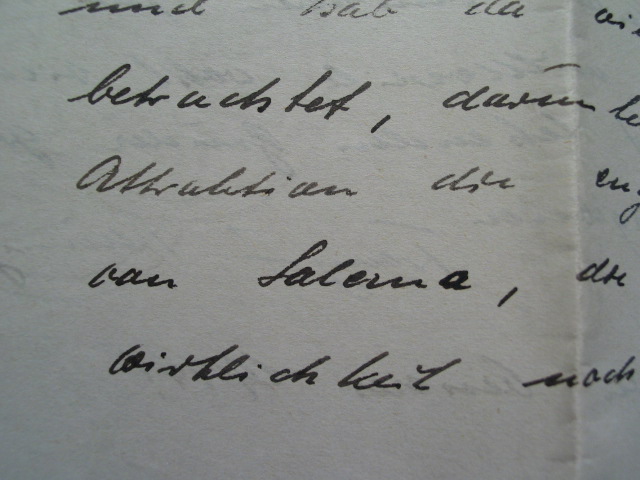 und hab da
betrachtet, darum
Attraktion der
von Salerno, die
wirklichkeit noch